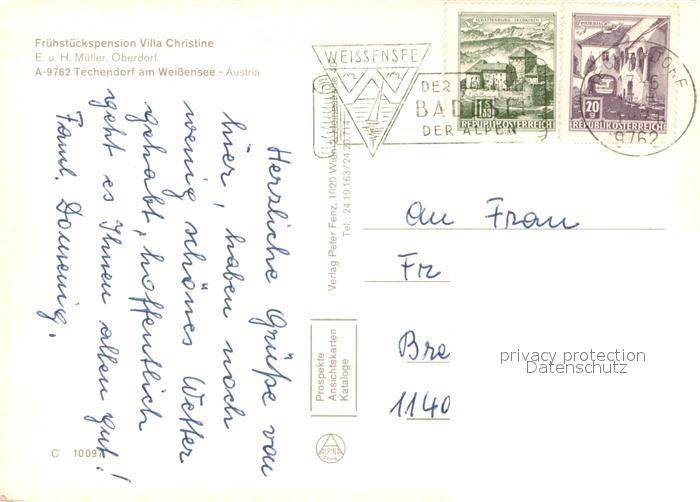 Frühstückspension Villa Christine
E. u. H. Müller, Oberdorf
A-9762 Techendorf am Weißensee - Austria
Herzliche Grüße von
hier, haben noch
wenig schönes Wetter
gehabt, hoffentlich
geht es Ihnen allen gut!
Faml. Domenig.
C 10097
Verlag Peter Fenz, 1020 Wien
Tel.: 24.19.163/24.20.714
Prospekte
Ansichtskarten
Kataloge
ALPINA
WEISSENSEE
DER
BADESEE
DER ALPEN
SCHATTENBURG - FELDKIRCH
REPUBLIK ÖSTERREICH
MÖRBISCH
20 g
REPUBLIK ÖSTERREICH
9762
An Frau
Fr
Bre
1140
privacy protection
Datenschutz